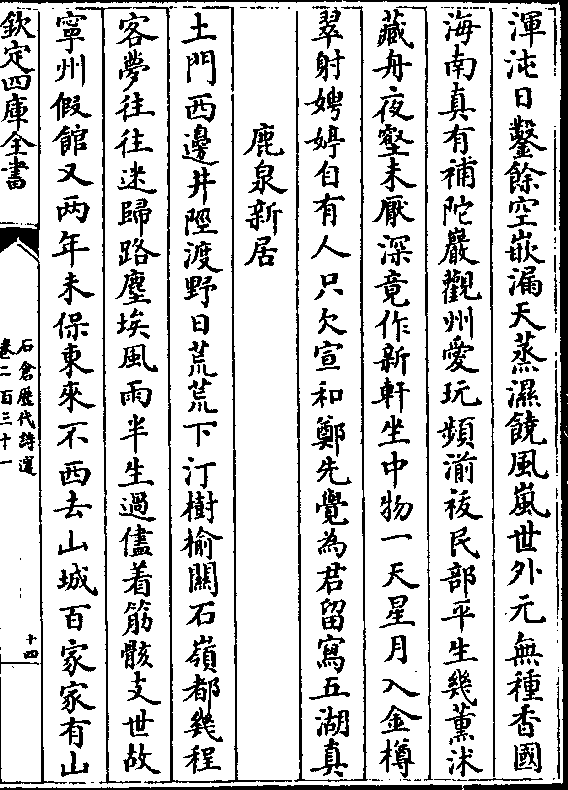 渾沌日鑿餘空嵌漏天蒸濕饒風嵐世外元無種香國
海南真有補陀巖觀州愛玩頻湔祓民部平生幾薰沐
藏舟夜壑未厭深竟作新軒坐中物一天星月入金樽
翠射娉婷自有人只欠宣和鄭先覺為君留寫五湖真
鹿泉新居
土門西邊井陘渡野日荒荒下汀樹榆關石嶺都幾程
客夢往往迷歸路塵埃風雨半生過儘着筋骸支世故
寧州假館又两年未保東來不西去山城百家家有山
欽定四庫全書
石倉歷代詩選
卷二百三十一
十四